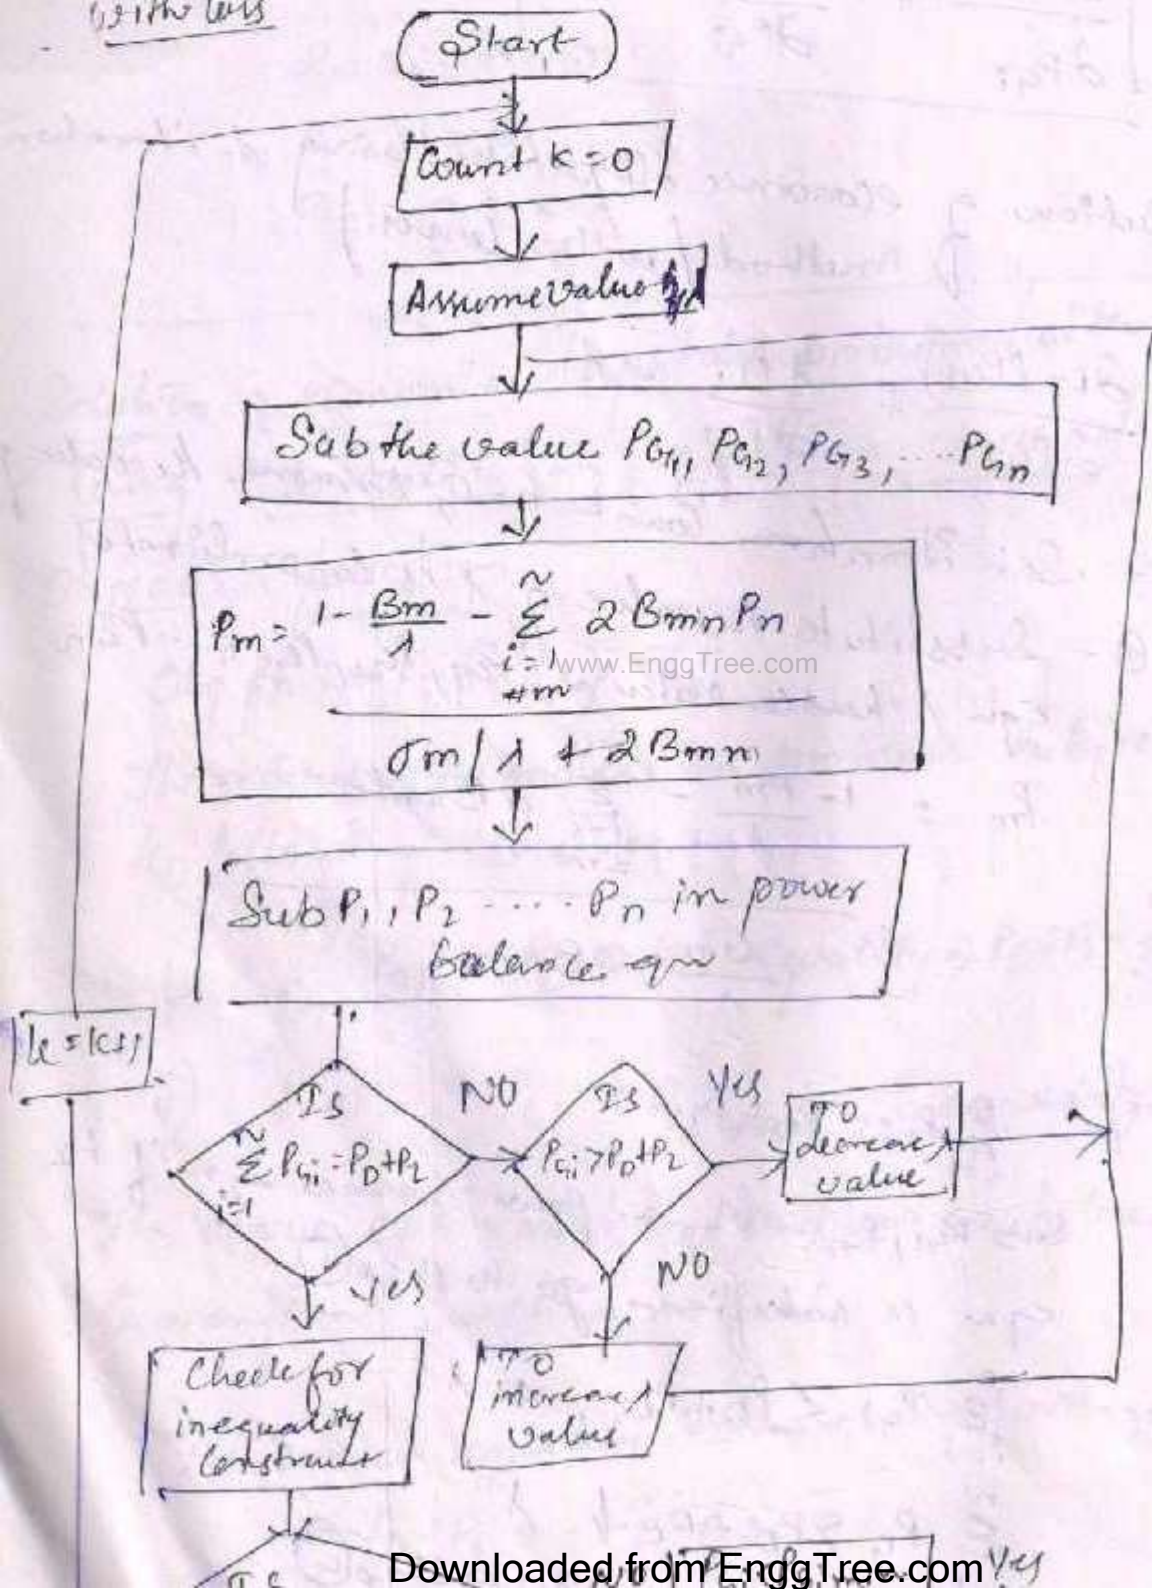 with loss
Start
Count k = 0
Assume value
Sub the value PG1, PG2, PG3, ..... PGn
Pm = 1 - Bm/λ - Σ 2 Bmn Pn
n
i = 1
≠m
www.EnggTree.com
σm / λ + 2 Bmn
Sub P1, P2 ..... Pn in power
balance eqn
k = k+1
Is
n
Σ PGi = PD + PL
i=1
NO
Is
PGi > PD + PL
Yes
TO
decrease λ
value
Yes
NO
Check for
inequality
Constraint
TO
increase λ
value
Is
NO
Yes
Downloaded from EnggTree.com